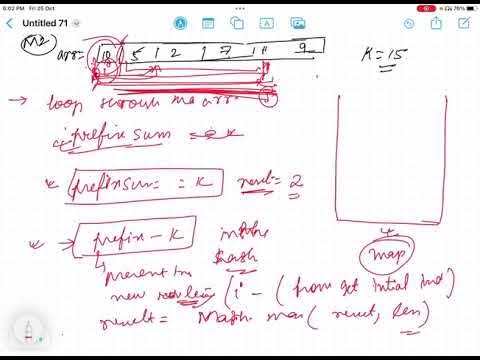 6:02 PM Fri 25 Oct
78%
Untitled 71
M2 arr= 10 5 1 2 1 7 11 9 K=15
→ loop through the arr
prefix sum
* prefixsum == K result= 2
* prefix - K in the hash
map
present
new (i - (from get intial ind)
result = Math.max( result, len)